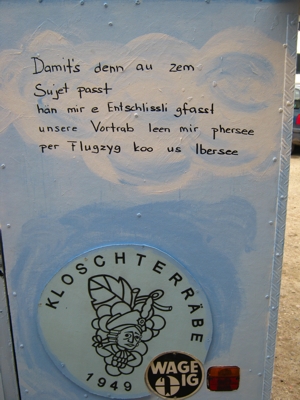 Damit's denn au zem
Sujet passt
hän mir e Entschlissli gfasst
unsere Vortrab leen mir phersee
per Flugzyg koo us Ibersee
KLOSCHTERRÄBE
1949
WAGE
IG